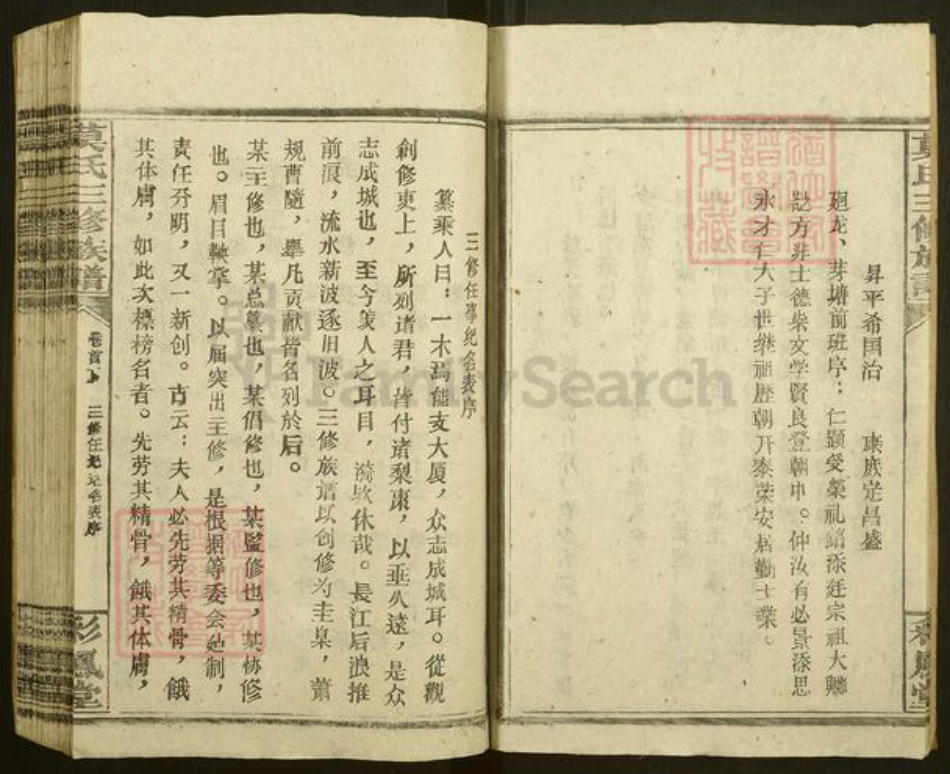 昇平希国治　康族定昌盛
廻龙、芽塘前班序：仁顕受荣礼紹添廷宗祖大興
方非士德柴文学賢良登朝中。仲汝有必景添思
永才仁大子世继祖歷朝开泰荣安居勤士業。
三修任事纪名表序
纂乘人曰：一木焉能支大厦，众志成城耳。從觀
創修吏上，所列诸君，皆付诸梨棗，以垂久遠，是众
志成城也，至今羡人之耳目，漪欤休哉。長江后浪推
前浪，流水新波逐旧波。三修族谱以创修为圭臬，萧
规曹隨，舉凡贡献皆名列於后。
某主修也，某总纂也，某倡修也，某監修也，某协修
也。眉目軼掌。以届突出主修，是根据等委会处制，
责任分明，又一新创。古云：夫人必先劳其精骨，餓
其体膚，如此次標榜名者。先劳其精骨，餓其体膚，
莫氏三修族譜
卷首上
三修任事纪名表序
彩鳳堂
FamilySearch